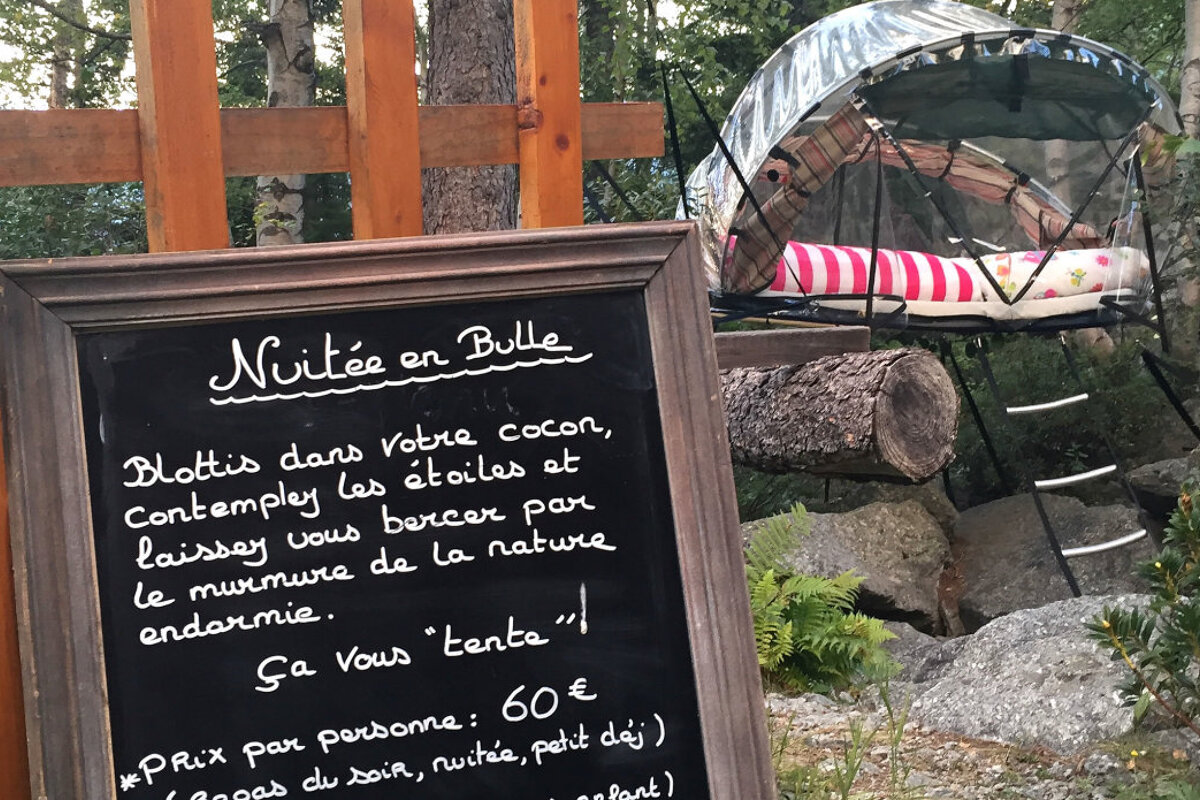 Nuitée en Bulle
Blottis dans votre cocon,
contemplez les étoiles et
laissez vous bercer par
le murmure de la nature
endormie.
Ça vous "tente"!
*Prix par personne: 60 €
(repas du soir, nuitée, petit déj)
enfant)